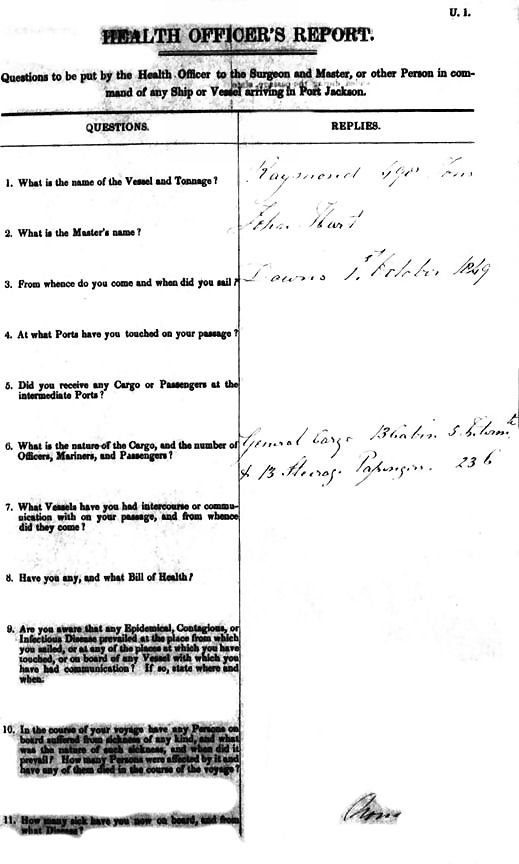 U. 1.
HEALTH OFFICER'S REPORT.
Questions to be put by the Health Officer to the Surgeon and Master, or other Person in com-
mand of any Ship or Vessel arriving in Port Jackson.
QUESTIONS.
REPLIES.
1. What is the name of the Vessel and Tonnage?
Raymond Tons
2. What is the Master's name?
John Hart
3. From whence do you come and when did you sail?
Downs 1st October 1849
4. At what Ports have you touched on your passage?
5. Did you receive any Cargo or Passengers at the
intermediate Ports?
6. What is the nature of the Cargo, and the number of
Officers, Mariners, and Passengers?
General Cargo 13 Cabin 5
& 13 Steerage Passengers. 23
7. What Vessels have you had intercourse or commu-
nication with on your passage, and from whence
did they come?
8. Have you any, and what Bill of Health?
9. Are you aware that any Epidemical, Contagious, or
Infectious Disease prevailed at the place from which
you sailed, or at any of the places at which you have
touched, or on board of any Vessel with which you
have had communication? If so, state where and
when.
10. In the course of your voyage have any Persons on
board suffered from sickness of any kind, and what
was the nature of such sickness, and when did it
prevail? How many Persons were affected by it and
have any of them died in the course of the voyage?
11. How many sick have you now on board, and from
what Disease?